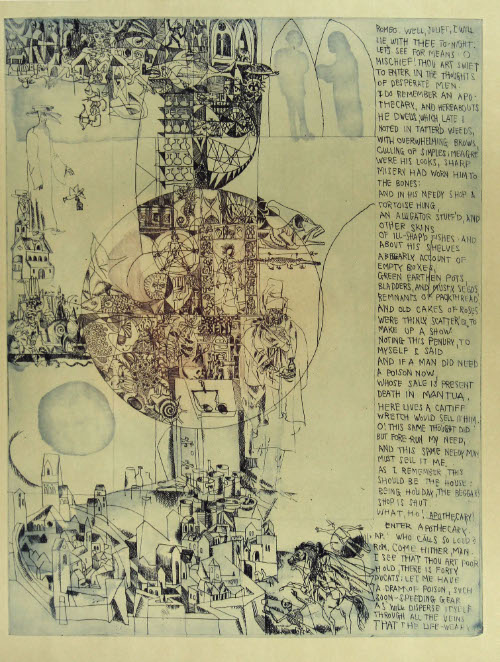 ROMEO. WELL, JULIET, I WILL
LIE WITH THEE TO-NIGHT.
LET'S SEE FOR MEANS: O
MISCHIEF! THOU ART SWIFT
TO ENTER IN THE THOUGHTS
OF DESPERATE MEN.
I DO REMEMBER AN APO-
THECARY, AND HEREABOUTS
HE DWELLS, WHICH LATE I
NOTED IN TATTER'D WEEDS,
WITH OVERWHELMING BROWS,
CULLING OF SIMPLES; MEAGRE
WERE HIS LOOKS, SHARP
MISERY HAD WORN HIM TO
THE BONES:
AND IN HIS NEEDY SHOP A
TORTOISE HUNG,
AN ALLIGATOR STUFF'D, AND
OTHER SKINS
OF ILL-SHAP'D FISHES: AND
ABOUT HIS SHELVES
A BEGGARLY ACCOUNT OF
EMPTY BOXES,
GREEN EARTHEN POTS,
BLADDERS, AND MUSTY SEEDS
REMNANTS OF PACKTHREAD
AND OLD CAKES OF ROSES
WERE THINLY SCATTER'D, TO
MAKE UP A SHOW.
NOTING THIS PENURY, TO
MYSELF I SAID
AND IF A MAN DID NEED
A POISON NOW,
WHOSE SALE IS PRESENT
DEATH IN MANTUA,
HERE LIVES A CAITIFF
WRETCH WOULD SELL IT HIM.
O! THIS SAME THOUGHT DID
BUT FORE-RUN MY NEED,
AND THIS SAME NEEDY MAN
MUST SELL IT ME.
AS I REMEMBER THIS
SHOULD BE THE HOUSE:
BEING HOLIDAY, THE BEGGAR'S
SHOP IS SHUT.
WHAT, HO! APOTHECARY!
ENTER APOTHECARY.
AP. WHO CALLS SO LOUD?
ROM. COME HITHER, MAN.
I SEE THAT THOU ART POOR
HOLD, THERE IS FORTY
DUCATS; LET ME HAVE
A DRAM OF POISON, SUCH
SOON-SPEEDING GEAR
AS WILL DISPERSE ITSELF
THROUGH ALL THE VEINS
THAT THE LIFE-WEARY